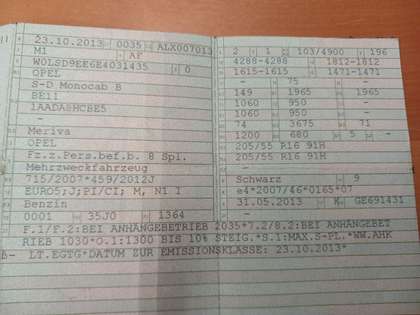 23.10.2013 0035 ALX007013
M1 AF
W0LSD9EE6E4031435 0
OPEL
S-D Monocab B
BE11
1AADA5HCBE5
-
Meriva
OPEL
Fz.z.Pers.bef.b. 8 Spl.
Mehrzweckfahrzeug
715/2007*459/2012J
EURO5;J;PI/CI; M, N1 I
Benzin
0001 35J0 1364
2 1 103/4900 196
4288-4288 1812-1812
1615-1615 1471-1471
- 75 -
149 1965 1965
1060 950 -
1060 950 -
74 3675 71
1200 680 5 -
205/55 R16 91H
205/55 R16 91H
-
Schwarz 9
e4*2007/46*0165*07
31.05.2013 K GE691431
F.1/F.2:BEI ANHÄNGEBETRIEB 2035*7.2/8.2:BEI ANHÄNGEBET
RIEB 1030*O.1:1300 BIS 10% STEIG.*S.1:MAX.S-PL.*WW.AHK
LT.EGTG*DATUM ZUR EMISSIONSKLASSE: 23.10.2013*